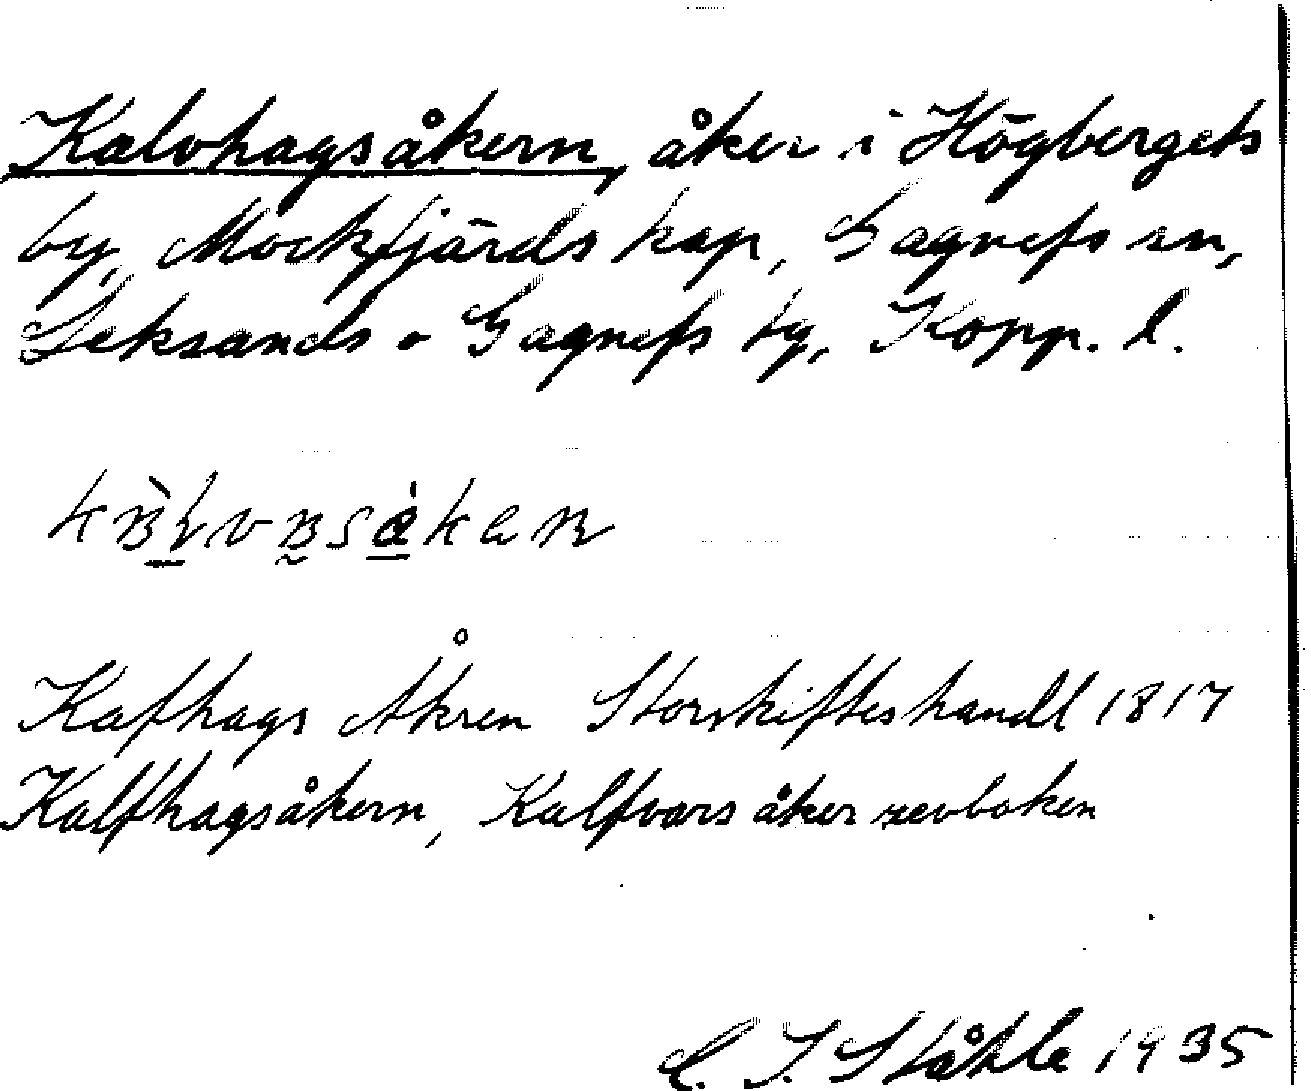 Kalvhagsåkern, åker i Högbergets
by, Mockfjärds kap, Gagnefs sn,
Leksands o Gagnefs tg, Kopp. l.
Kafhags Åkren Storskifteshandl 1817
Kalfhagsåkern, Kalfvars åker revboken
C. I. Ståhle 1935